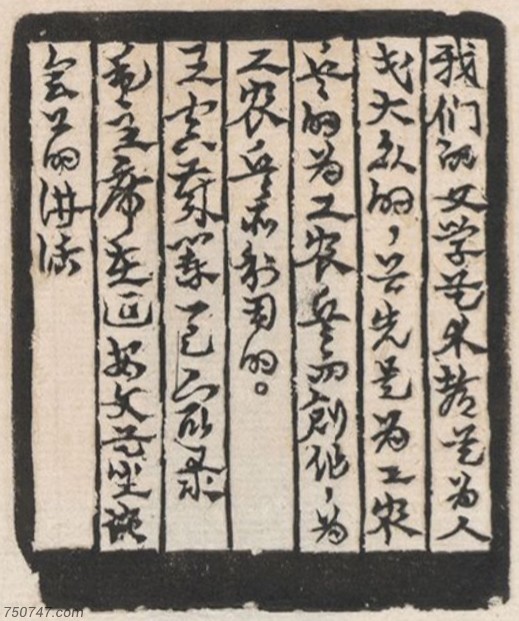 我们的文学艺术都是为人
民大众的，首先是为工农
兵的为工农兵而創作，为
工农兵所利用的。
王 录
毛主席在延安文艺坐谈
会上的讲话
750747.com